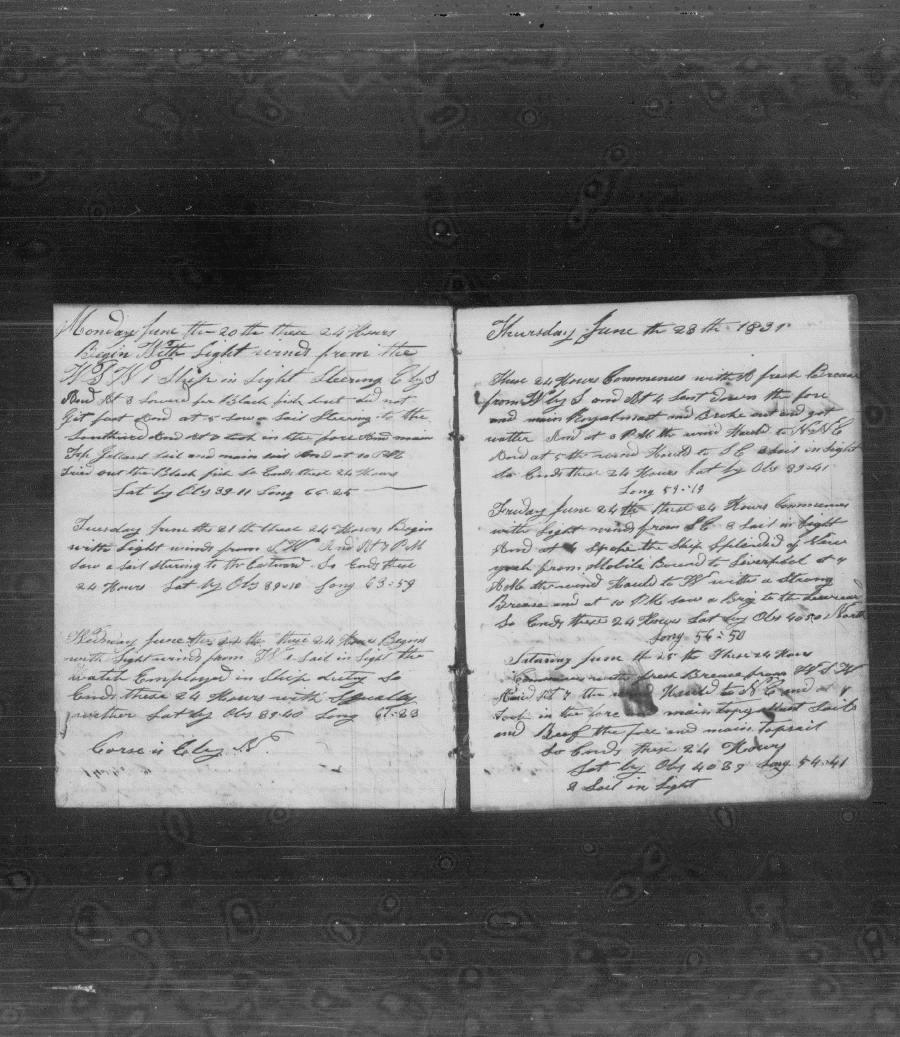 Monday June the 20 th these 24 Hours
Begin With Light winds from the
W S W 1 Ship in Light Steering E by S
And At 3 Lowerd for Black fish but did not
Get fast And at 5 saw a Sail Steering to the
Southward And At 7 took in the fore And main
Top Gallant sail and main sail And at 10 PM
Tried out the Black fish So Ends these 24 Hours
Lat by Obs 39-11 Long 65-25
Tuesday June the 21 th these 24 Hours Begin
with Light winds from S W And At 7 P M
Saw a Sail Stering to the Eastward So Ends these
24 Hours Lat by Obs 39-10 Long 63=59
Wednesday June the 22 th these 24 Hours Begins
with Light winds from W 1 Sail in Light the
watch Employed in Ship duty So
Ends these 24 Hours with Squally
wether Lat by Obs 39-40 Long 61-23
Corse is E by N
Thursday June the 23 th 1831
These 24 Hours Commences with A fresh Breeze
from W by S and At 4 Sent down the fore
and main Royal mast and Broke out and got
watter And at 3 P M the wind Hauld to N N E
And at 5 the wind Hauld to S E 2 Sail in Light
So Ends these 24 Hours Lat by Obs 39-41
Long 59=19
Friday June 24 th these 24 Hours Commences
with Light winds from S E 3 Sail in Light
And at 4 Spoke the Ship Splended of New
york from Mobile Bound to Liverpool at 7
A Mo the wind Hauld to W with a Strong
Brease and at 10 P M saw a Brig to the Leeward
So Ends these 24 Hours Lat by Obs 40=50 North
Long 56=50
Saturday June the 25 th These 24 Hours
Commences with fresh Brease from W S W
And At 7 the wind Hauld to N E and at 8
took in the fore and main top gallant Sails
and Reef the fore and main topsail
So Ends these 24 Hours
Lat by Obs 40 39 Long 54=41
2 Sail in Light